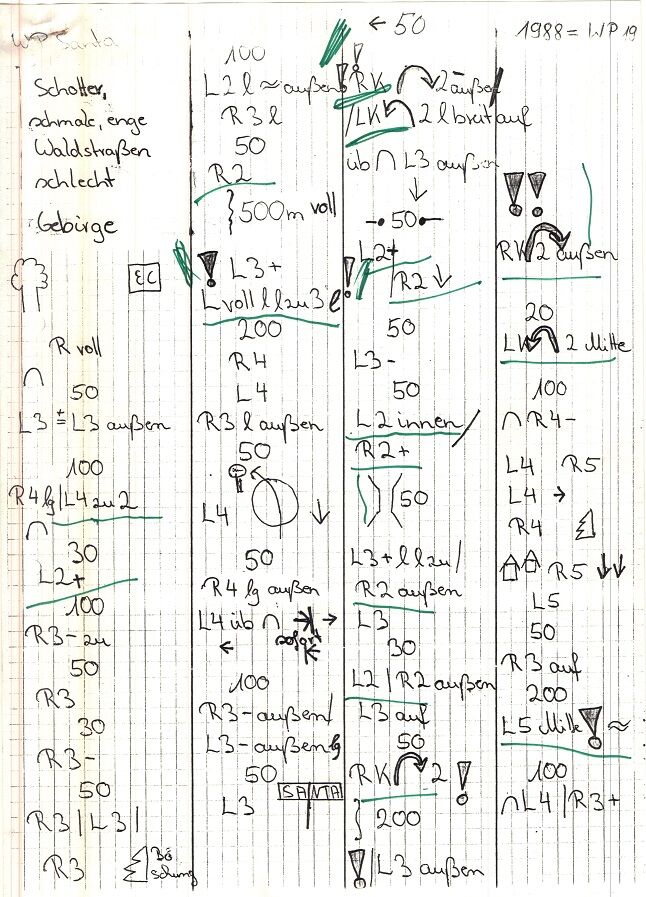 WP Santa
Schotter,
schmale, enge
Waldstraßen
schlecht
Gebirge
EC
R voll
∩
50
L3 ≡ L3 außen
100
R4 lg/L4 zu 2
∩
30
L2+
100
R3-zu
50
R3
30
R3-
50
R3|L3|
R3 Bö
schung
100
L2 l ≈ außen
R3 l
50
R2
500m voll
! L3+
L voll l l zu 3 l
200
R4
L4
R3 l außen
50
L4 ↓
50
R4 lg außen
L4 üb ∩ →
← sofort ←
100
R3-außen/
L3-außen lg
50
L3 SANTA
← 50
!
! RK 2 außen
/LK 2 l breit auf
üb ∩ L3 außen
↓
50
L2+
! R2 ↓
50
L3-
50
L2 innen/
R2+
50
L3+ l l zu/
R2 außen
L3
30
L2|R2 außen
L3 auf
50
RK 2 !
200
! L3 außen
1988 = WP 19
!!
RK 2 außen
20
LK 2 Mitte
100
∩ R4-
L4 R5
L4 →
R4
R5 ↓↓
L5
50
R3 auf
200
L5 Mitte ! ≈
100
∩L4|R3+